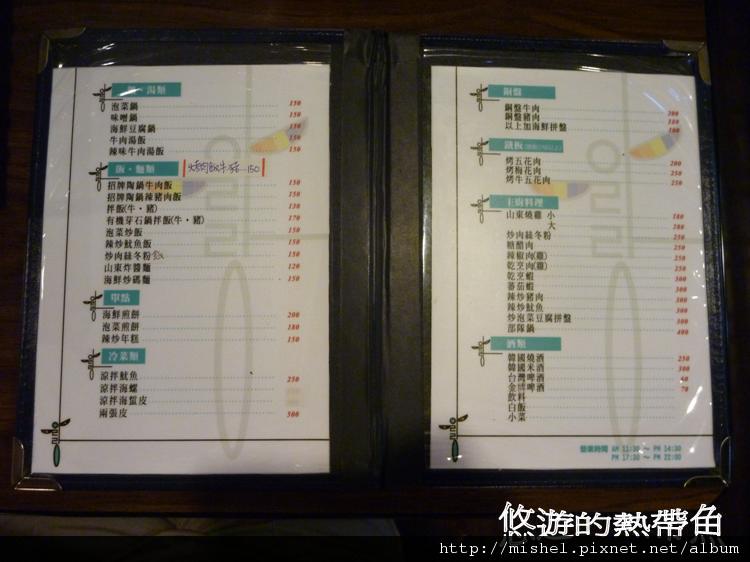 湯類
泡菜鍋 150
味噌鍋 150
海鮮豆腐鍋 150
牛肉湯飯 150
辣味牛肉湯飯 150
飯‧麵類
烤肉飯牛.豬 150
招牌陶鍋牛肉飯 150
招牌陶鍋辣豬肉飯 150
拌飯(牛‧豬) 130
有機芽石鍋拌飯(牛‧豬) 170
泡菜炒飯 150
辣炒魷魚飯 150
炒肉絲冬粉飯 150
山東炸醬麵 120
海鮮炒碼麵 150
單點
海鮮煎餅 200
泡菜煎餅 180
辣炒年糕 150
冷菜類
涼拌魷魚 250
涼拌海螺
涼拌海蜇皮
兩張皮 500
銅盤
銅盤牛肉
銅盤豬肉
以上加海鮮拼盤
鐵板
烤五花肉 200
烤梅花肉 250
烤牛五花肉 250
主廚料理
山東燒雞 小 180
大 280
炒肉絲冬粉 250
糖醋肉 250
辣椒肉(雞) 250
乾烹肉(雞) 250
乾烹蝦 300
蕃茄蝦 300
辣炒豬肉 250
辣炒魷魚 250
炒泡菜豆腐拼盤 300
部隊鍋 400
酒類
韓國燒酒 250
韓國米酒 300
台灣啤酒 60
金牌啤酒 70
飲料
白飯
小菜
營業時間 AM 11:30 ～ PM 14:30
PM 17:30 ～ PM 22:00
悠游的熱帶魚
http://mishel.pixnet.net/album